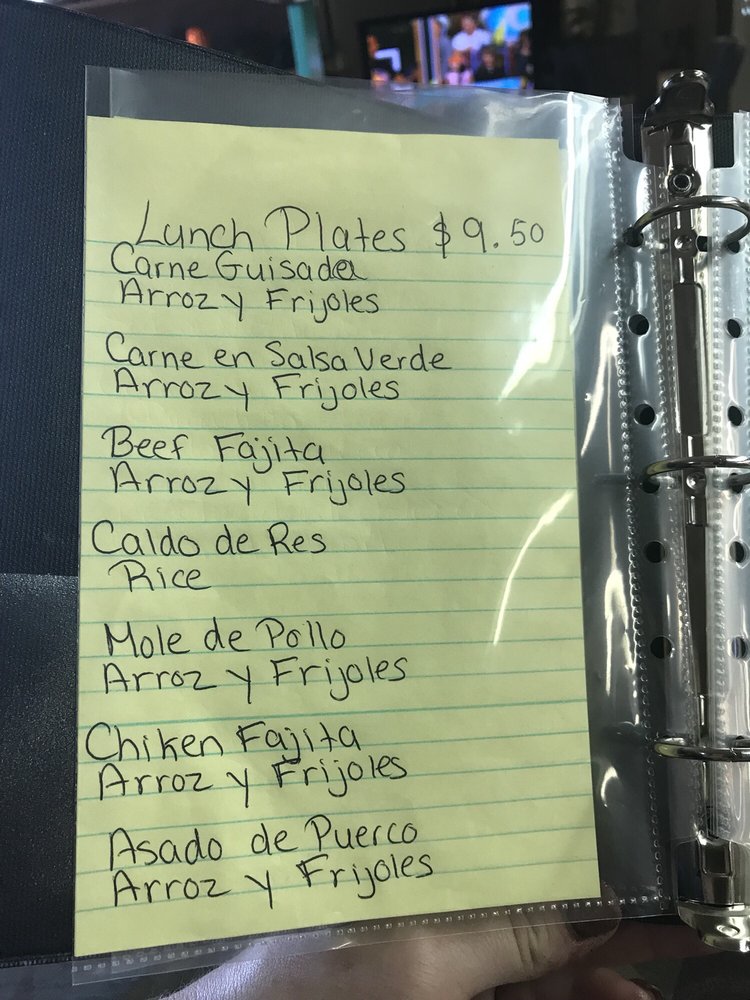 Lunch Plates $9.50
Carne Guisada
Arroz y Frijoles
Carne en Salsa Verde
Arroz y Frijoles
Beef Fajita
Arroz y Frijoles
Caldo de Res
Rice
Mole de Pollo
Arroz y Frijoles
Chiken Fajita
Arroz y Frijoles
Asado de Puerco
Arroz y Frijoles